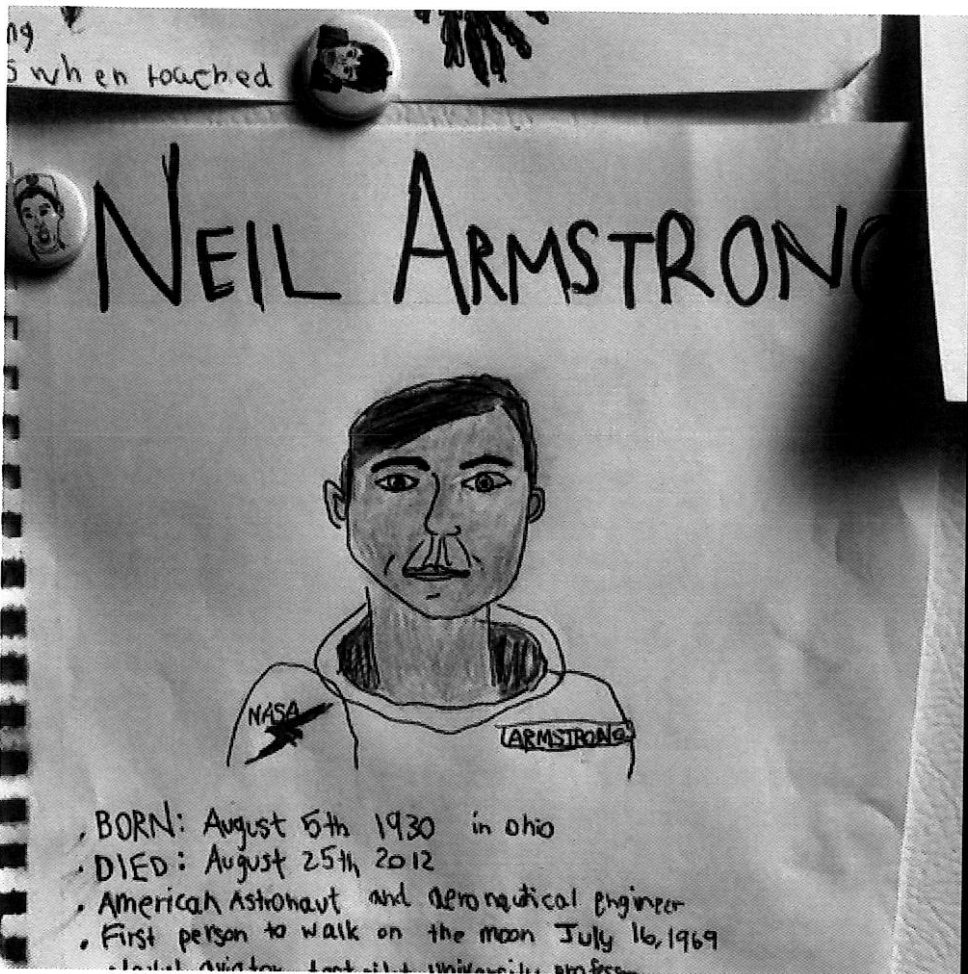 ng
s when touched
NEIL ARMSTRONG
NASA
ARMSTRONG
BORN: August 5th 1930 in ohio
DIED: August 25th 2012
American Astronaut and aeronautical engineer
First person to walk on the moon July 16, 1969
aviator, test pilot university